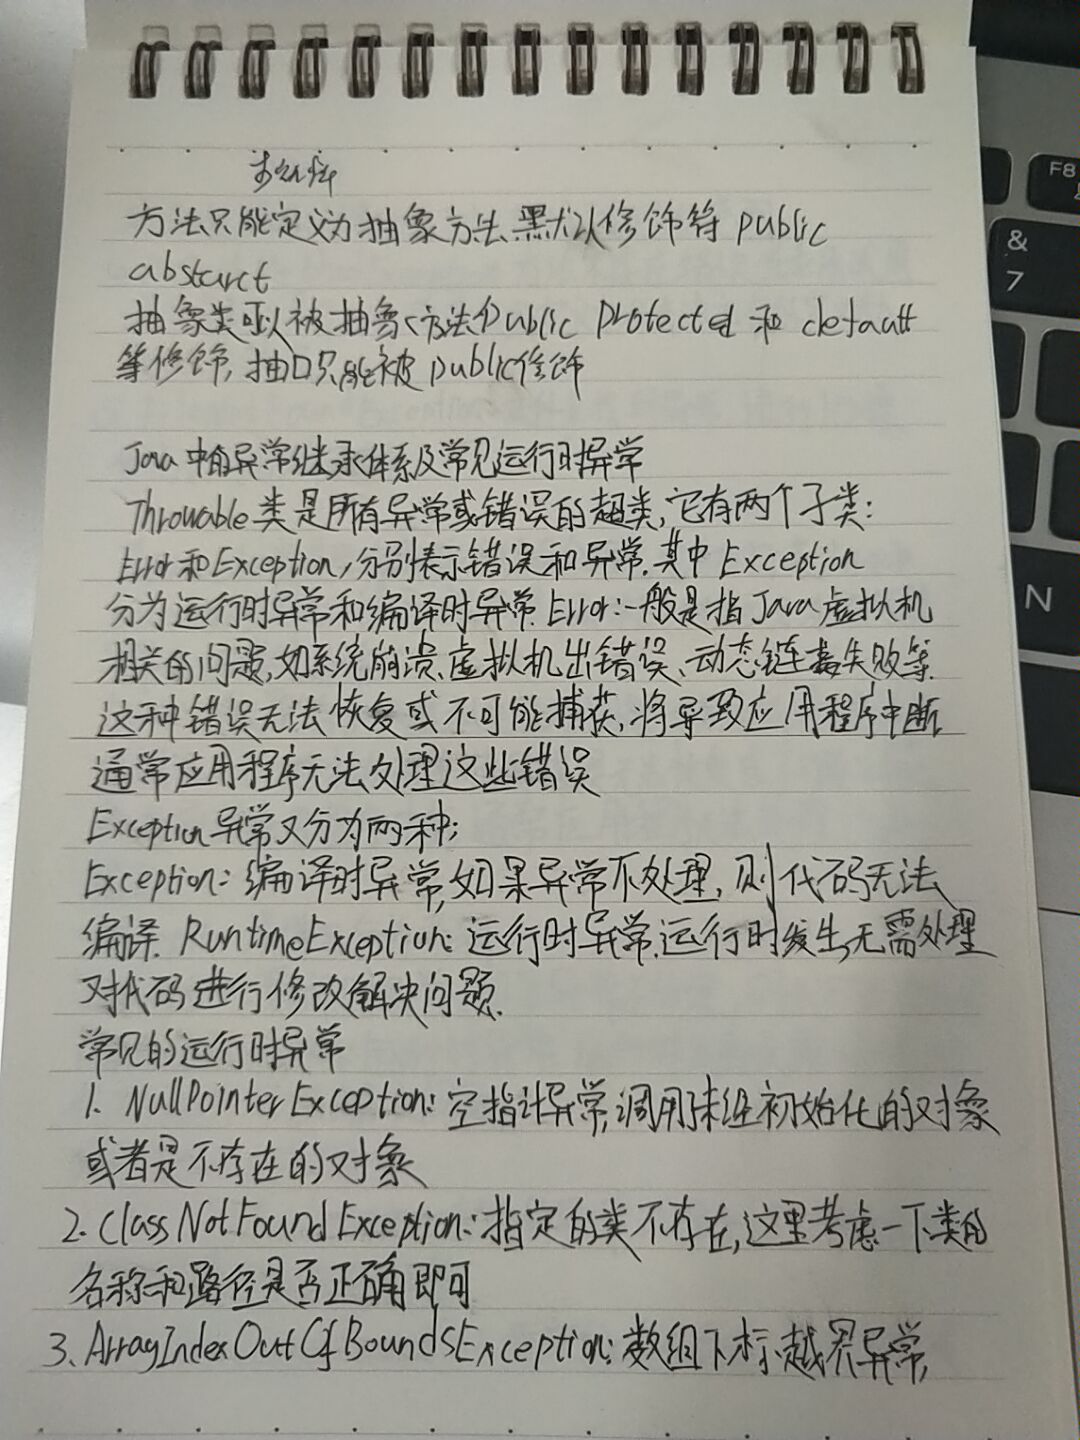 方法只能定义为抽象方法默认修饰符 public
abstarct
抽象类可以被抽象方法public Protected 和 default
等修饰,抽口只能被public修饰
Java 中的异常继承体系及常见运行时异常
Throwable 类是所有异常或错误的超类,它有两个子类:
Error和Exception,分别表示错误和异常.其中 Exception
分为运行时异常和编译时异常.Error:一般是指Java虚拟机
相关的问题,如系统崩溃、虚拟机出错误、动态链接失败等.
这种错误无法恢复或不可能捕获,将导致应用程序中断
通常应用程序无法处理这些错误
Exception异常又分为两种:
Exception:编译时异常,如果异常不处理,则代码无法
编译. RuntimeException:运行时异常.运行时发生,无需处理
对代码进行修改解决问题.
常见的运行时异常
1. NullPointerException:空指针异常,调用未经初始化的对象
或者是不存在的对象
2. ClassNotFoundException:指定的类不存在,这里考虑一下类的
名称和路径是否正确即可
3. ArrayIndexOutOfBoundsException:数组下标越界异常,
F8
&
7
N